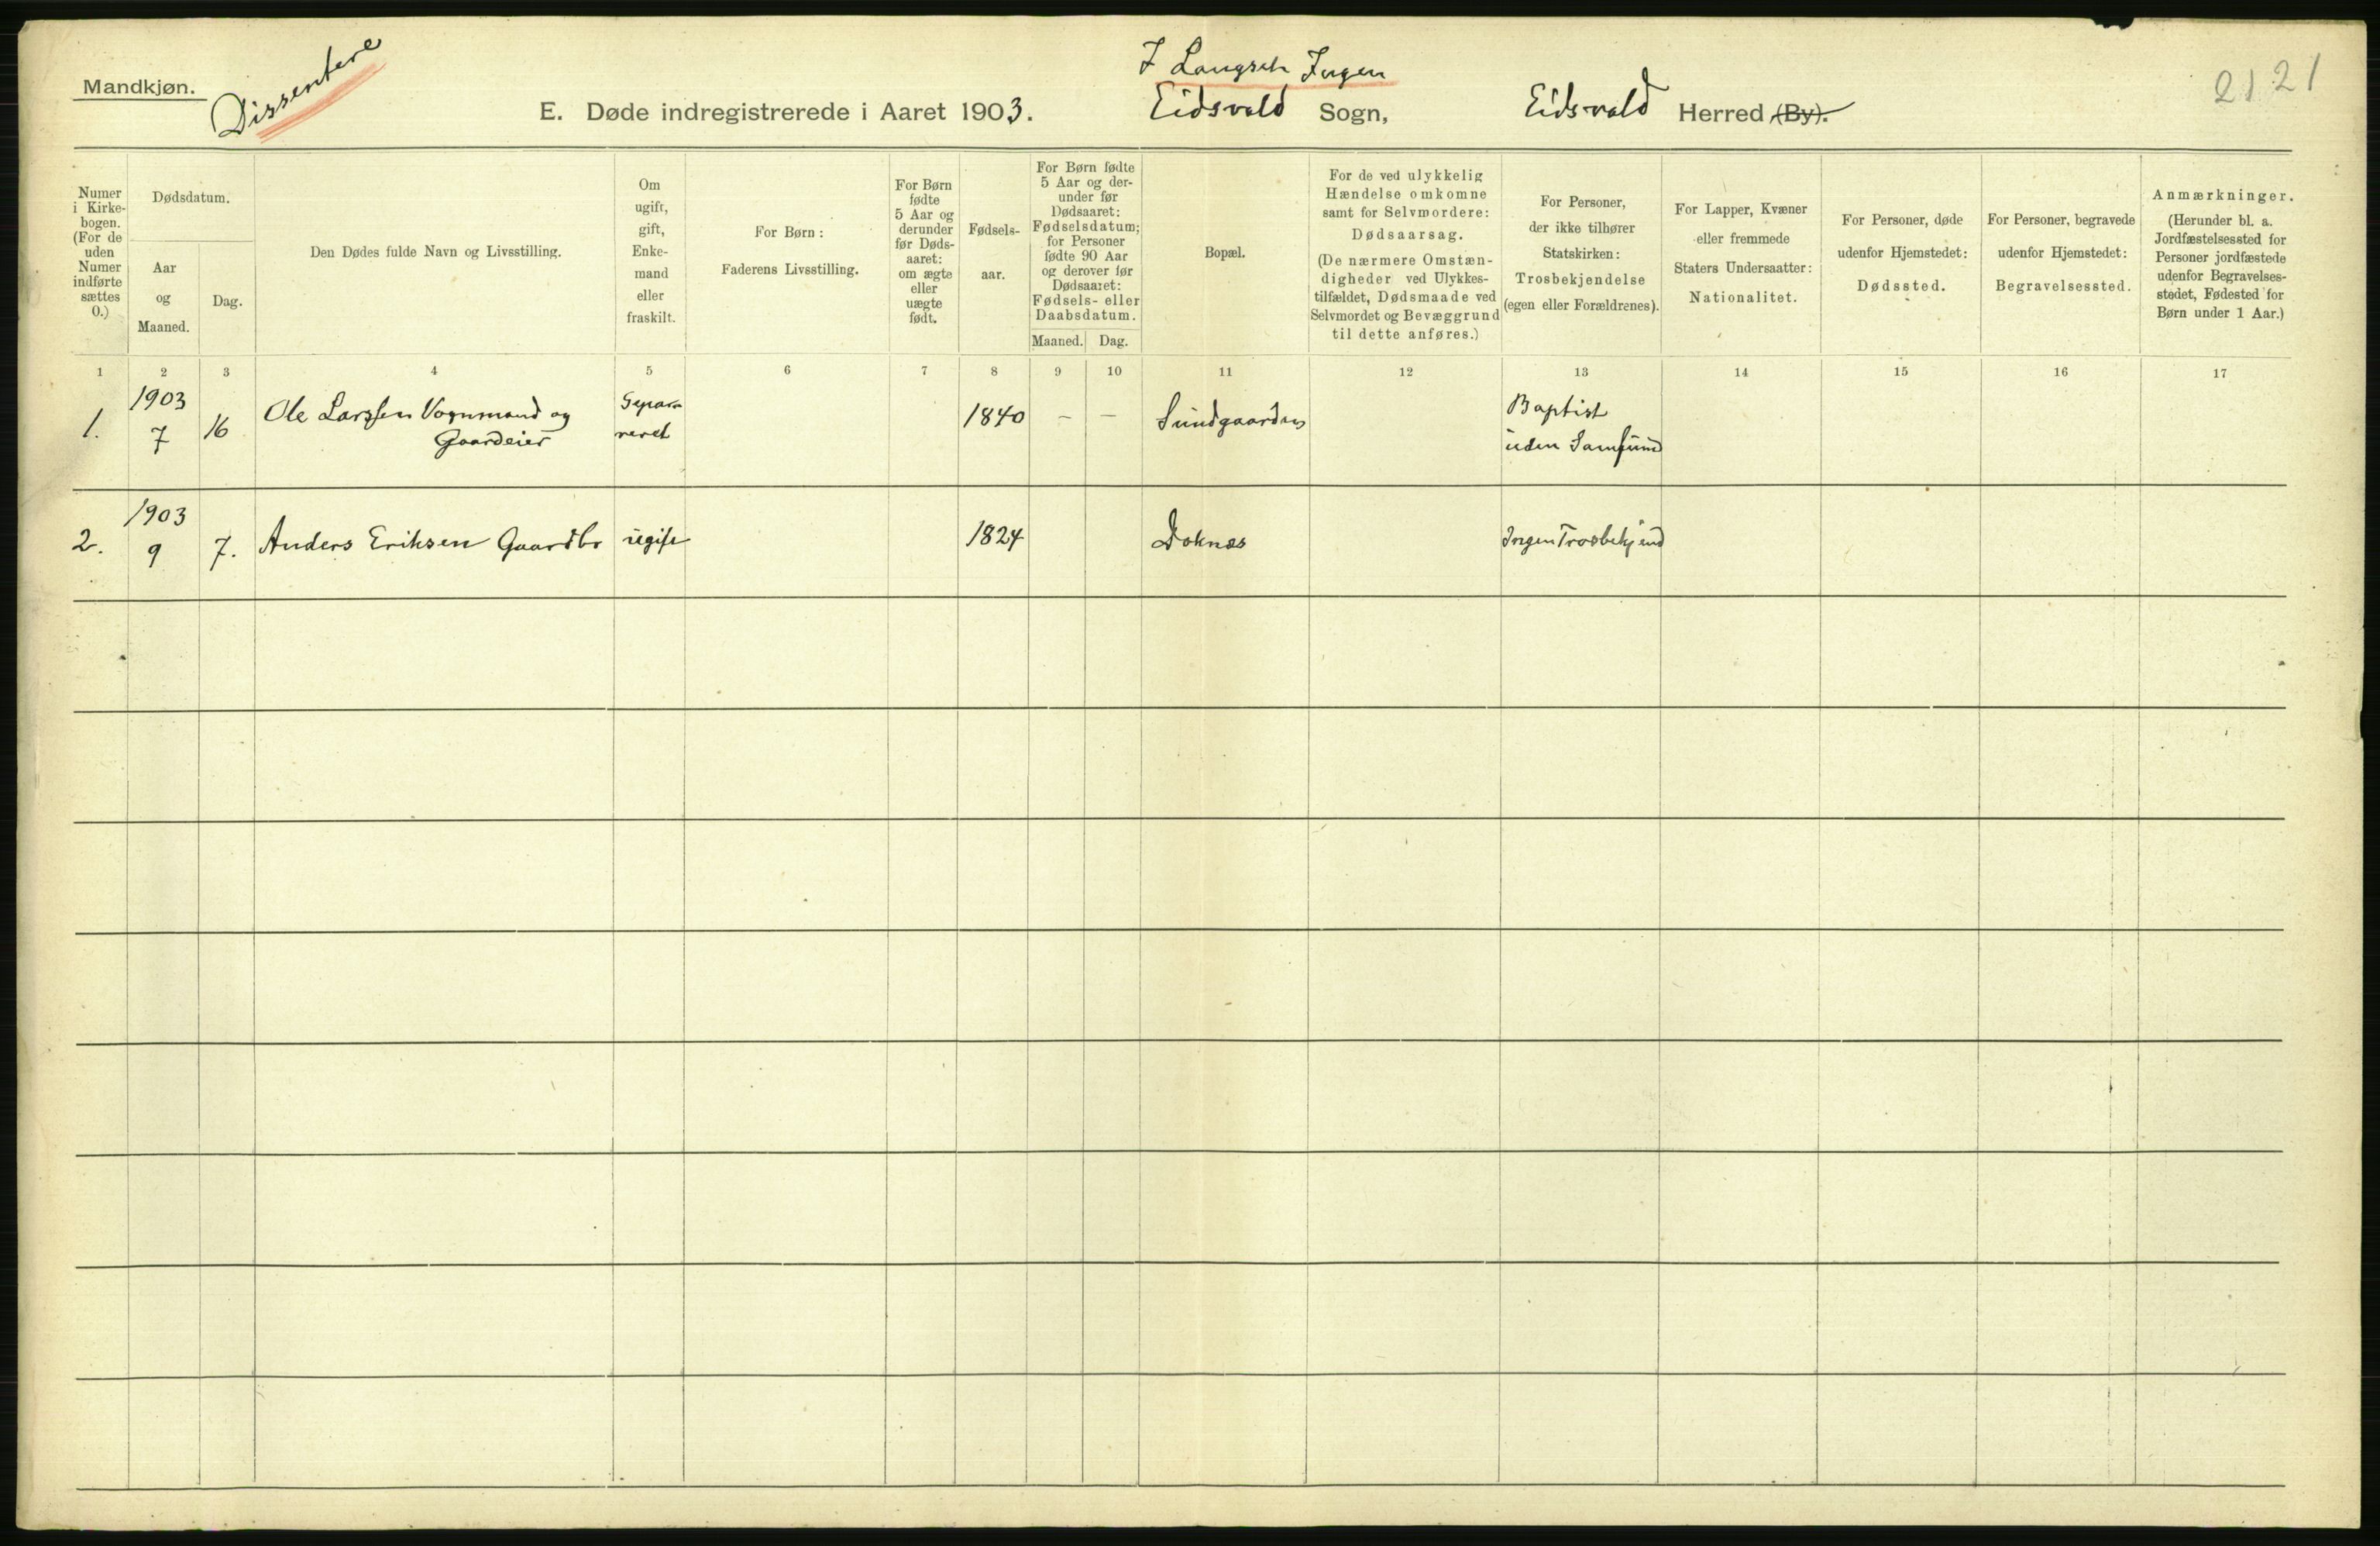 Mandkjøn.
Dissentere
I Langset Ingen
E. Døde indregistrerede i Aaret 1903. Eidsvold Sogn, Eidsvold Herred (By).
21 21
Numer
i Kirke-
bogen.
(For de
uden
Numer
indførte
sættes
0.)
Dødsdatum.
Aar
og
Maaned.
Dag.
Den Dødes fulde Navn og Livsstilling.
Om
ugift,
gift,
Enke-
mand
eller
fraskilt.
For Børn:
Faderens Livsstilling.
For Børn
fødte
5 Aar og
derunder
før Døds-
aaret:
om ægte
eller
uægte
født.
Fødsels-
aar.
For Børn fødte
5 Aar og der-
under før
Dødsaaret:
Fødselsdatum;
for Personer
fødte 90 Aar
og derover før
Dødsaaret:
Fødsels- eller
Daabsdatum.
Maaned. Dag.
Bopæl.
For de ved ulykkelig
Hændelse omkomne
samt for Selvmordere:
Dødsaarsag.
(De nærmere Omstæn-
digheder ved Ulykkes-
tilfældet, Dødsmaade ved
Selvmordet og Bevæggrund
til dette anføres.)
For Personer,
der ikke tilhører
Statskirken:
Trosbekjendelse
(egen eller Forældrenes).
For Lapper, Kvæner
eller fremmede
Staters Undersaatter:
Nationalitet.
For Personer, døde
udenfor Hjemstedet:
Dødssted.
For Personer, begravede
udenfor Hjemstedet:
Begravelsessted.
Anmærkninger.
(Herunder bl. a.
Jordfæstelsessted for
Personer jordfæstede
udenfor Begravelses-
stedet, Fødested for
Børn under 1 Aar.)
1 2 3 4 5 6 7 8 9 10 11 12 13 14 15 16 17
1. 1903
7 16 Ole Larssen Vognmand og
Gaardeier
Sepa-
reret
1840 – – Sundgaarden Baptist
uden Samfund
2. 1903
9 7. Anders Eriksen Gaardbr ugift 1824 Doknes Ingen Trosbekjend